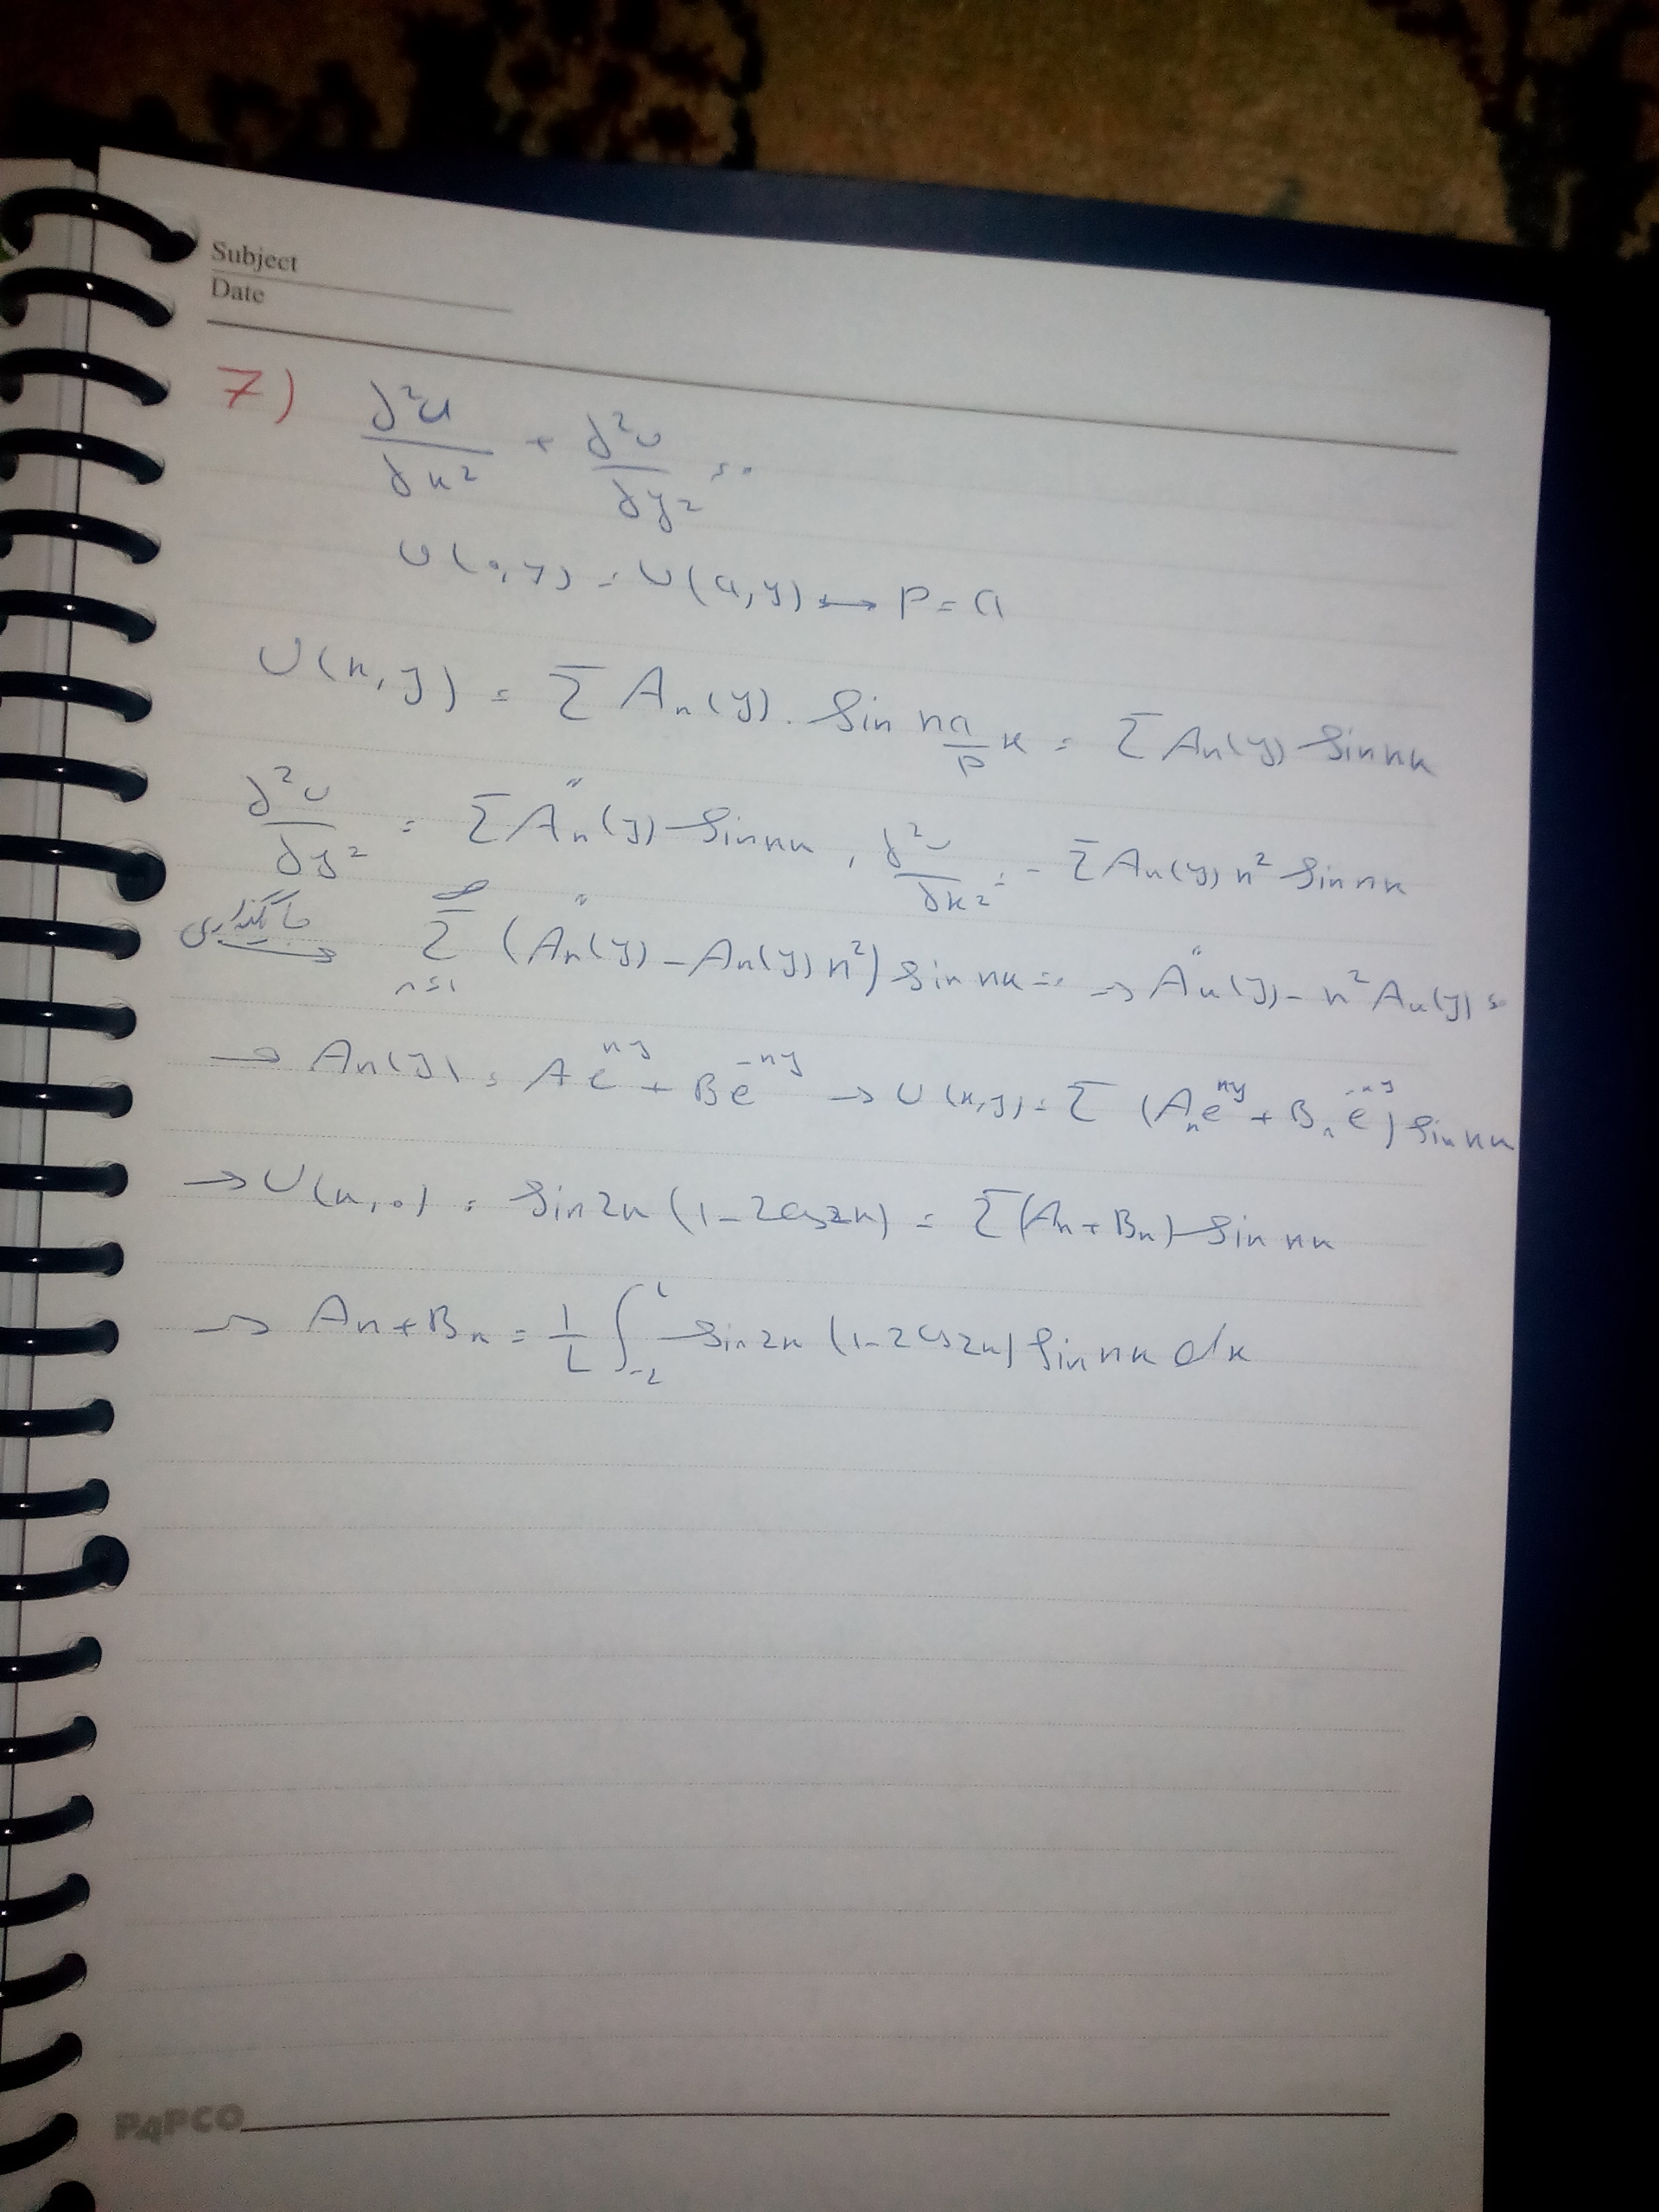 Subject
Date
7) ∂²u/∂x² + ∂²u/∂y² = 0
U(0,y) = U(π,y) → P = π
U(x,y) = Σ An(y) . Sin nπ/P x = Σ An(y) Sin nx
∂²u/∂y² = Σ An″(y) Sin nx , ∂²u/∂x² = - Σ An(y) n² Sin nx
جایگذاری → Σ n=1 ∞ (An″(y) - An(y) n²) Sin nx = 0 → An″(y) - n² An(y) = 0
→ An(y) = A e^ny + B e^-ny → U(x,y) = Σ (An e^ny + Bn e^-ny) Sin nx
→ U(x,0) = Sin 2x (1 - 2 cos 2x) = Σ (An + Bn) Sin nx
→ An + Bn = 1/L ∫_-L^L Sin 2x (1 - 2 cos 2x) Sin nx dx
PAPCO